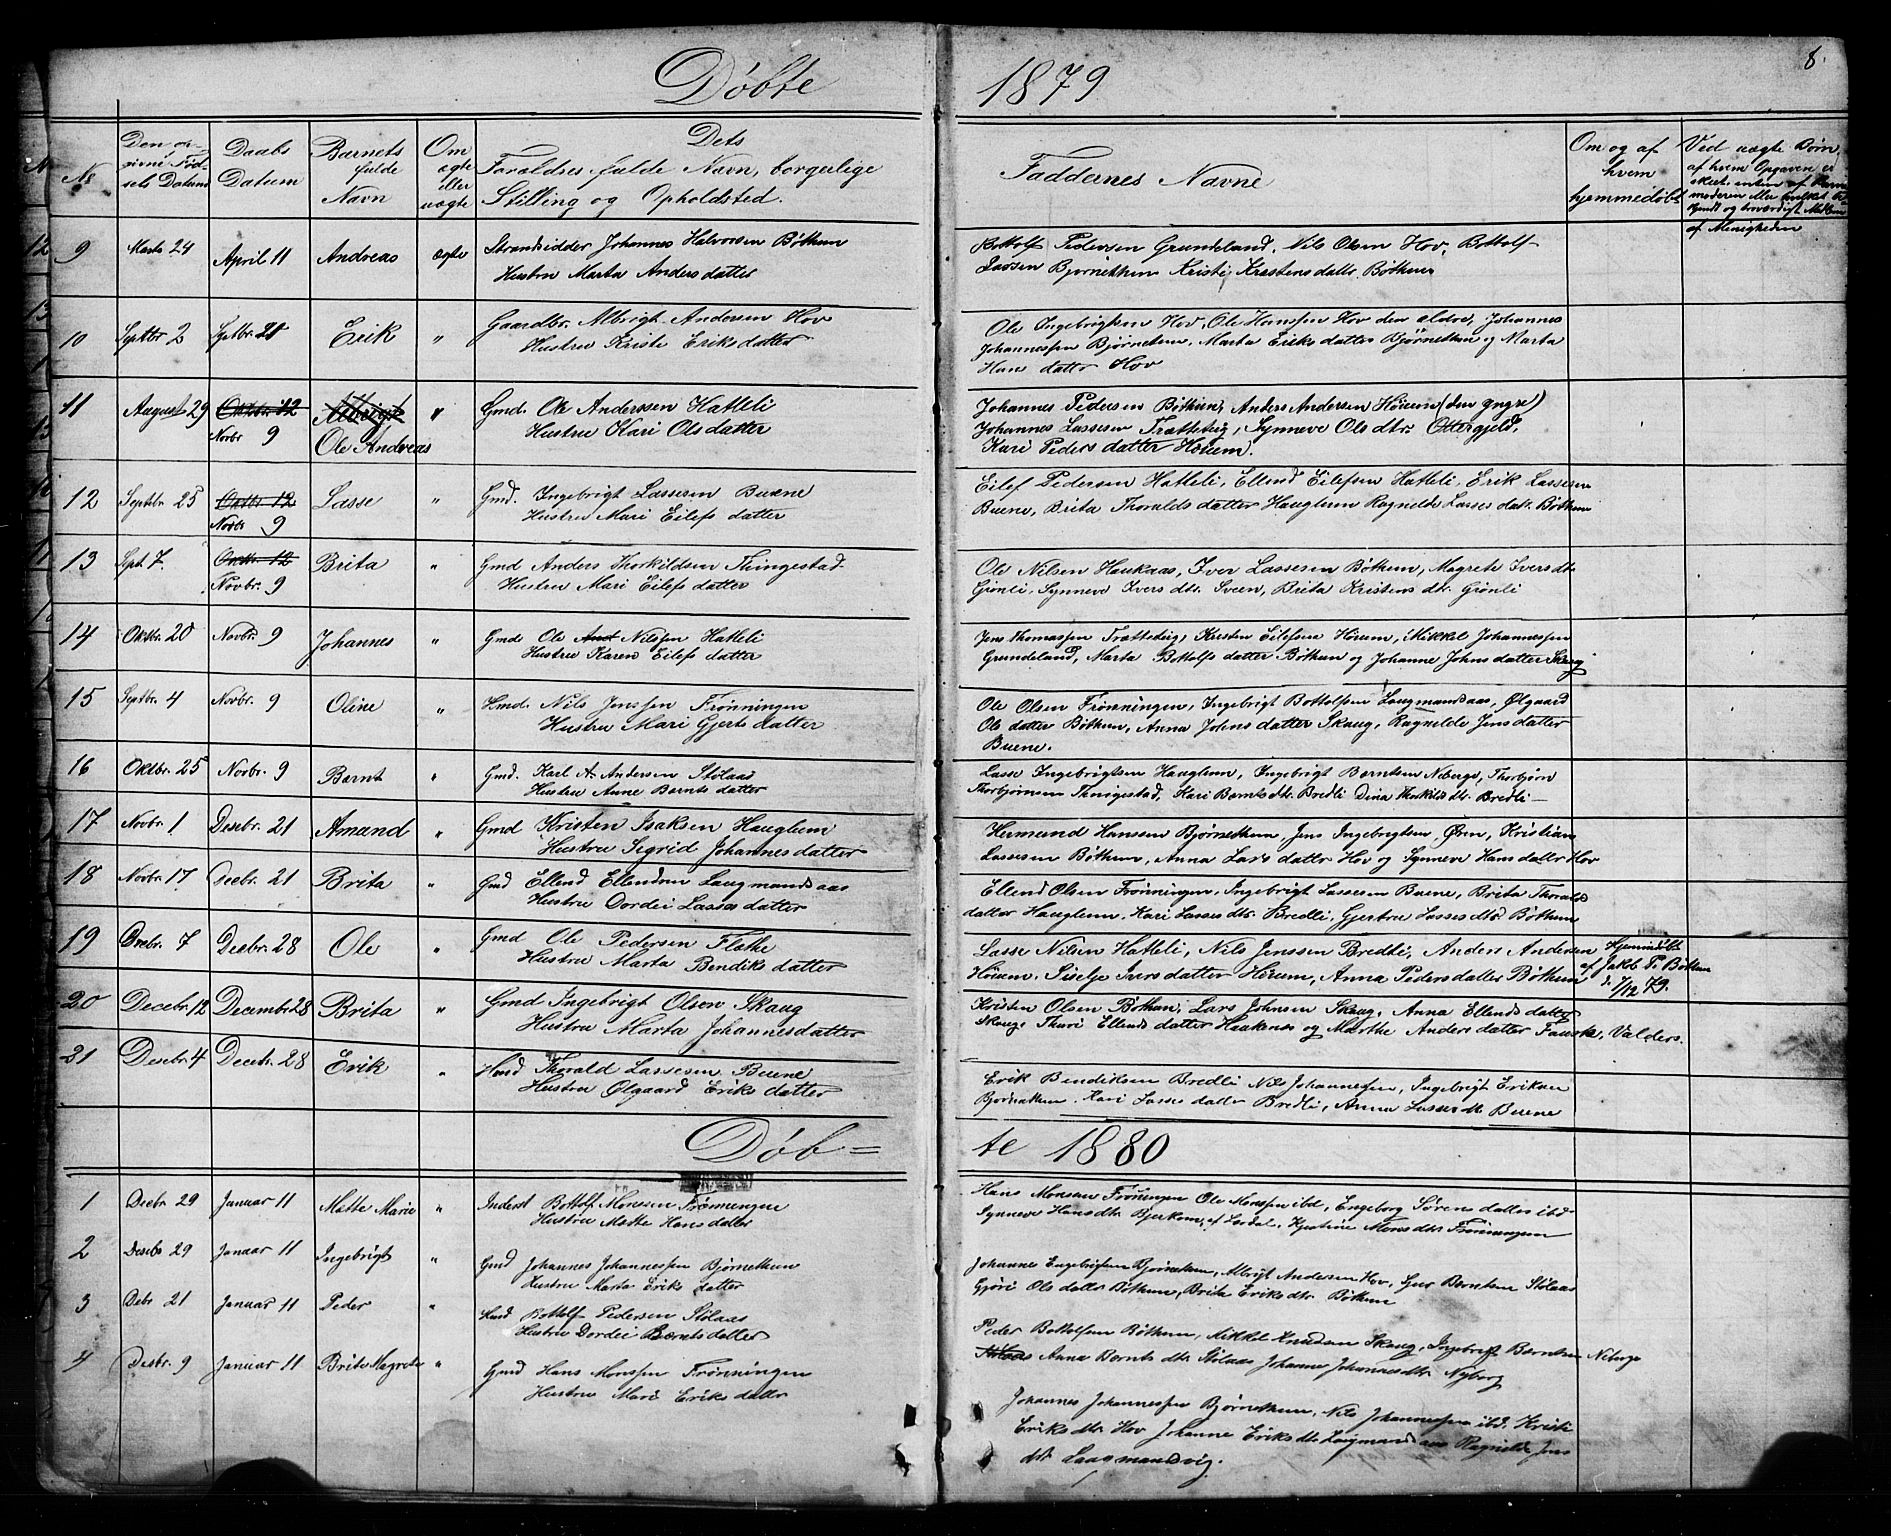 Døbte 1879
8.
No
Den an-
givne Fød-
sels Datum
Daabs
Datum
Barnets
fulde
Navn
Om
ægte
eller
uægte
Dets
Forældres fulde Navn, borgerlige
Stilling og Opholdsted.
Faddernes Navne
Om og af
hvem
hjemmedøbt
Ved uægte Børn,
af hvem Opgaven er
skeet, enten af
moderen eller
og troværdigt
af Menigheden
9 Marts 24 April 11 Andreas ægte Strandsidder Johannes Halvorsen Bøthun
Hustru Marta Andersdatter
Bottolf Pedersen Grundeland, Nils Olsen Hov, Bottolf
Lassen Bjørnethun Kristi Kristensdattr. Bøthun
10 Septbr 2 Septbr. 21 Erik " Gaardbr. Albrigt Andersen Hov
Hustru Kristi Eriksdatter
Ole Ingebrigtsen Hov, Ole Hanssen Hov den eldre, Johannes
Johannessen Bjørnetun, Marta Eriksdatter Bjørnethun og Marta
Hans datter Hov
11 August 29 Oktbr. 12 Albrigt " Gmd. Ole Anderssen Hatleli
Novbr 9 Ole Andreas Hustru Kari Olsdatter
Johannes Pedersen Bøthun, Anders Andersen Hørum (den yngre)
Johannes Lassesen Trætteteig, Synneve Olsdtr. Ottergjeld,
Kari Pedersdatter Hørum.
12 Septbr. 25 Oktbr. 12 Lasse " Gmd. Ingebrigt Lassesen Buene
Novbr 9 Hustru Mari Eilefs datter
Eilef Pedersen Hatleli, Ellend Eilefsen Hatleli, Erik Lassesen
Buene, Brita Thoralds datter Hauglum Ragnilde Lasses datr. Bøthun
13 Sept 7. Oktbr. 12 Brita " Gmd Anders Thorkildsen Thingestad
Novbr. 9 Hustru Mari Eilefs datter
Ole Nilsen Haukaas, Iver Lassesen Bøthun, Magrete Ivers dtr.
Grønli, Synneve Ivers dtr. Sveen, Brita Kristens dtr. Grønli
14 Oktbr. 20 Novbr. 9 Johannes " Gmd. Ole And Nilssen Hatleli
Hustru Karen Eilefs datter
Jens Thomassen Trætteteig, Kersten Eilefsen Hørum, Mikkel Johannessen
Grundeland, Marta Bottolfs datter Bøthun og Johanne Johnsdatter Skaug
15 Septbr. 4 Novbr. 9 Oline " Hmd. Nils Jenssen Frønningen
Hustru Mari Gjerts datter
Ole Olsen Frønningen, Ingebrigt Bottolfsen Laugmandsaas, Ølgaard
Ols datter Bøthun, Anna Johns datter Skaug, Ragnilde Jensdatter
Buene.
16 Oktbr. 25 Novbr. 9 Bernt " Gmd. Karl A. Andersen Stølaas
Hustru Anne Bernts datter
Lasse Ingebrigtsen Hauglum, Ingebrigt Berntsen Neberge, Thorbjørn
Thorbjørnsen Thingestad, Kari Bernts dtr. Bredli Dina Thorkilds dtr. Bredli
17 Novbr. 1 Desebr. 21 Amand " Gmd Kristen Isaksen Hauglum
Hustru Sigrid Johannes datter
Hermund Hanssen Bjørnethun, Jens Ingebrigtsen Øren, Kristian
Lassesen Bøthun, Anna Lars datter Hov og Synneve Hans datter Hov
18 Novbr. 17 Decbr. 21 Brita " Gmd Ellend Ellendsen Laugmandsaas
Hustru Dordei Lasses datter
Ellend Olsen Frønningen, Ingebrigt Lassesen Buene, Brita Thoralds
datter Hauglum, Kari Lasses dtr. Bredli, Gjertrue Lasses dtr. Bøthun
19 Decbr. 7 Decbr. 28 Ole " Gmd Ole Pedersen Flathe
Hustru Marta Bendiks datter
Lasse Nilsen Hatleli, Nils Jenssen Bredli, Anders Andersen
Hørum, Siselje Ivers datter Hørum, Anna Pedersdatter Bøthun
Hjemmedøbt
af Jakob P. Bøthun
d. 7/12 79.
20 Decebr. 12 Decembr. 28 Brita " Gmd Ingebrigt Olsen Skaug
Hustru Marta Johannes datter
Kristen Olsen Bøthun, Lars Johnsen Skaug, Anna Ellends datter
Skaug, Thuri Ellends datter Haukenes og Marthe Anders datter Fauske, Valders.
21 Desebr. 4 Decebr. 28 Erik " Hmd Thorald Lassesen Buene
Hustru Ølgaard Eriks datter
Erik Bendiksen Bredli Nils Johannesen, Ingebrigt Eriksen
Bjørnethun. Kari Lasses datter Bredli, Anna Lasses dtr. Buene
Døb=te 1880
1 Decbr 29 Januar 11 Mætte Marie " Inderst Bottolf Monsen Frønningen
Hustru Mætte Hans datter
Hans Monsen Frønningen Ole Monssen ibd, Engeborg Sørens datter ibd
Synneve Hans dtr. Bjerkom, af Lærdal, Kjerstine Mons dtr. Frønningen
2 Desebr 29 Januar 11 Ingebrigt " Gmd Johannes Johannessen Bjørnethun
Hustru Marta Eriks datter
Johannes Engebrigtsen Bjørnethun, Albrigt Andersen Hov, Berntsen Stølaas
Gjøri Ols datter Bøthun, Brita Eriks dtr. Bøthun
3 Debr. 21 Januar 11 Peder " Hmd Bottolf Pedersen Stølaas
Hustru Dordei Bernts datter
Peder Bottolfsen Bøthun, Mikkel Knudsen Skaug, Ingebrigt Berntsen Neberge
Anna Bernts dtr. Stølaas Johanne Johannes dtr. Nyborg
4 Desbr. 9 Januar 11 Brite Magrete " Gmd Hans Monssen Frønningen
Hustru Mari Eriks datter
Johannes Johannessen Bjørnethun, Nils Johannessen ibd. Kristi
Eriks dtr. Hov Johanne Eriks dtr. Laugmandsaas Ragnilde Jens
dtr. Laugmandvig.